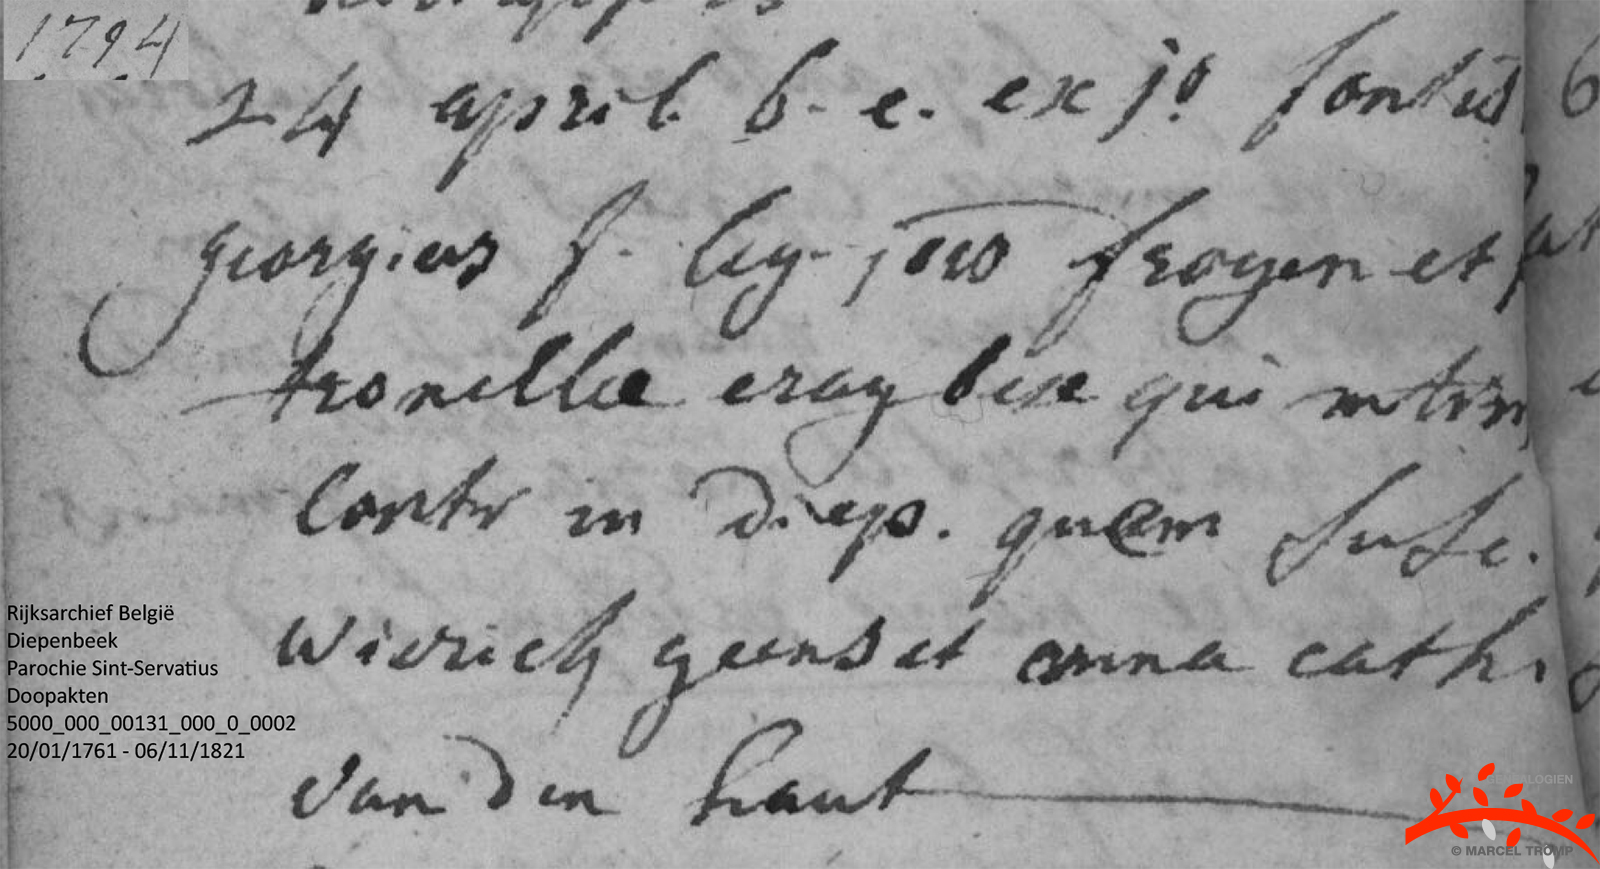 1794
24 april b. e. ex j⁰ fontis
georgius f. leg. joes froyen et pe
tronillae craybex qui mtrm
Contr in Diep. quem susc.
Wierick geens et anna cath.
van den haut
Rijksarchief België
Diepenbeek
Parochie Sint-Servatius
Doopakten
5000_000_00131_000_0_0002
20/01/1761 - 06/11/1821
GENEALOGIEN
© MARCEL TROMP